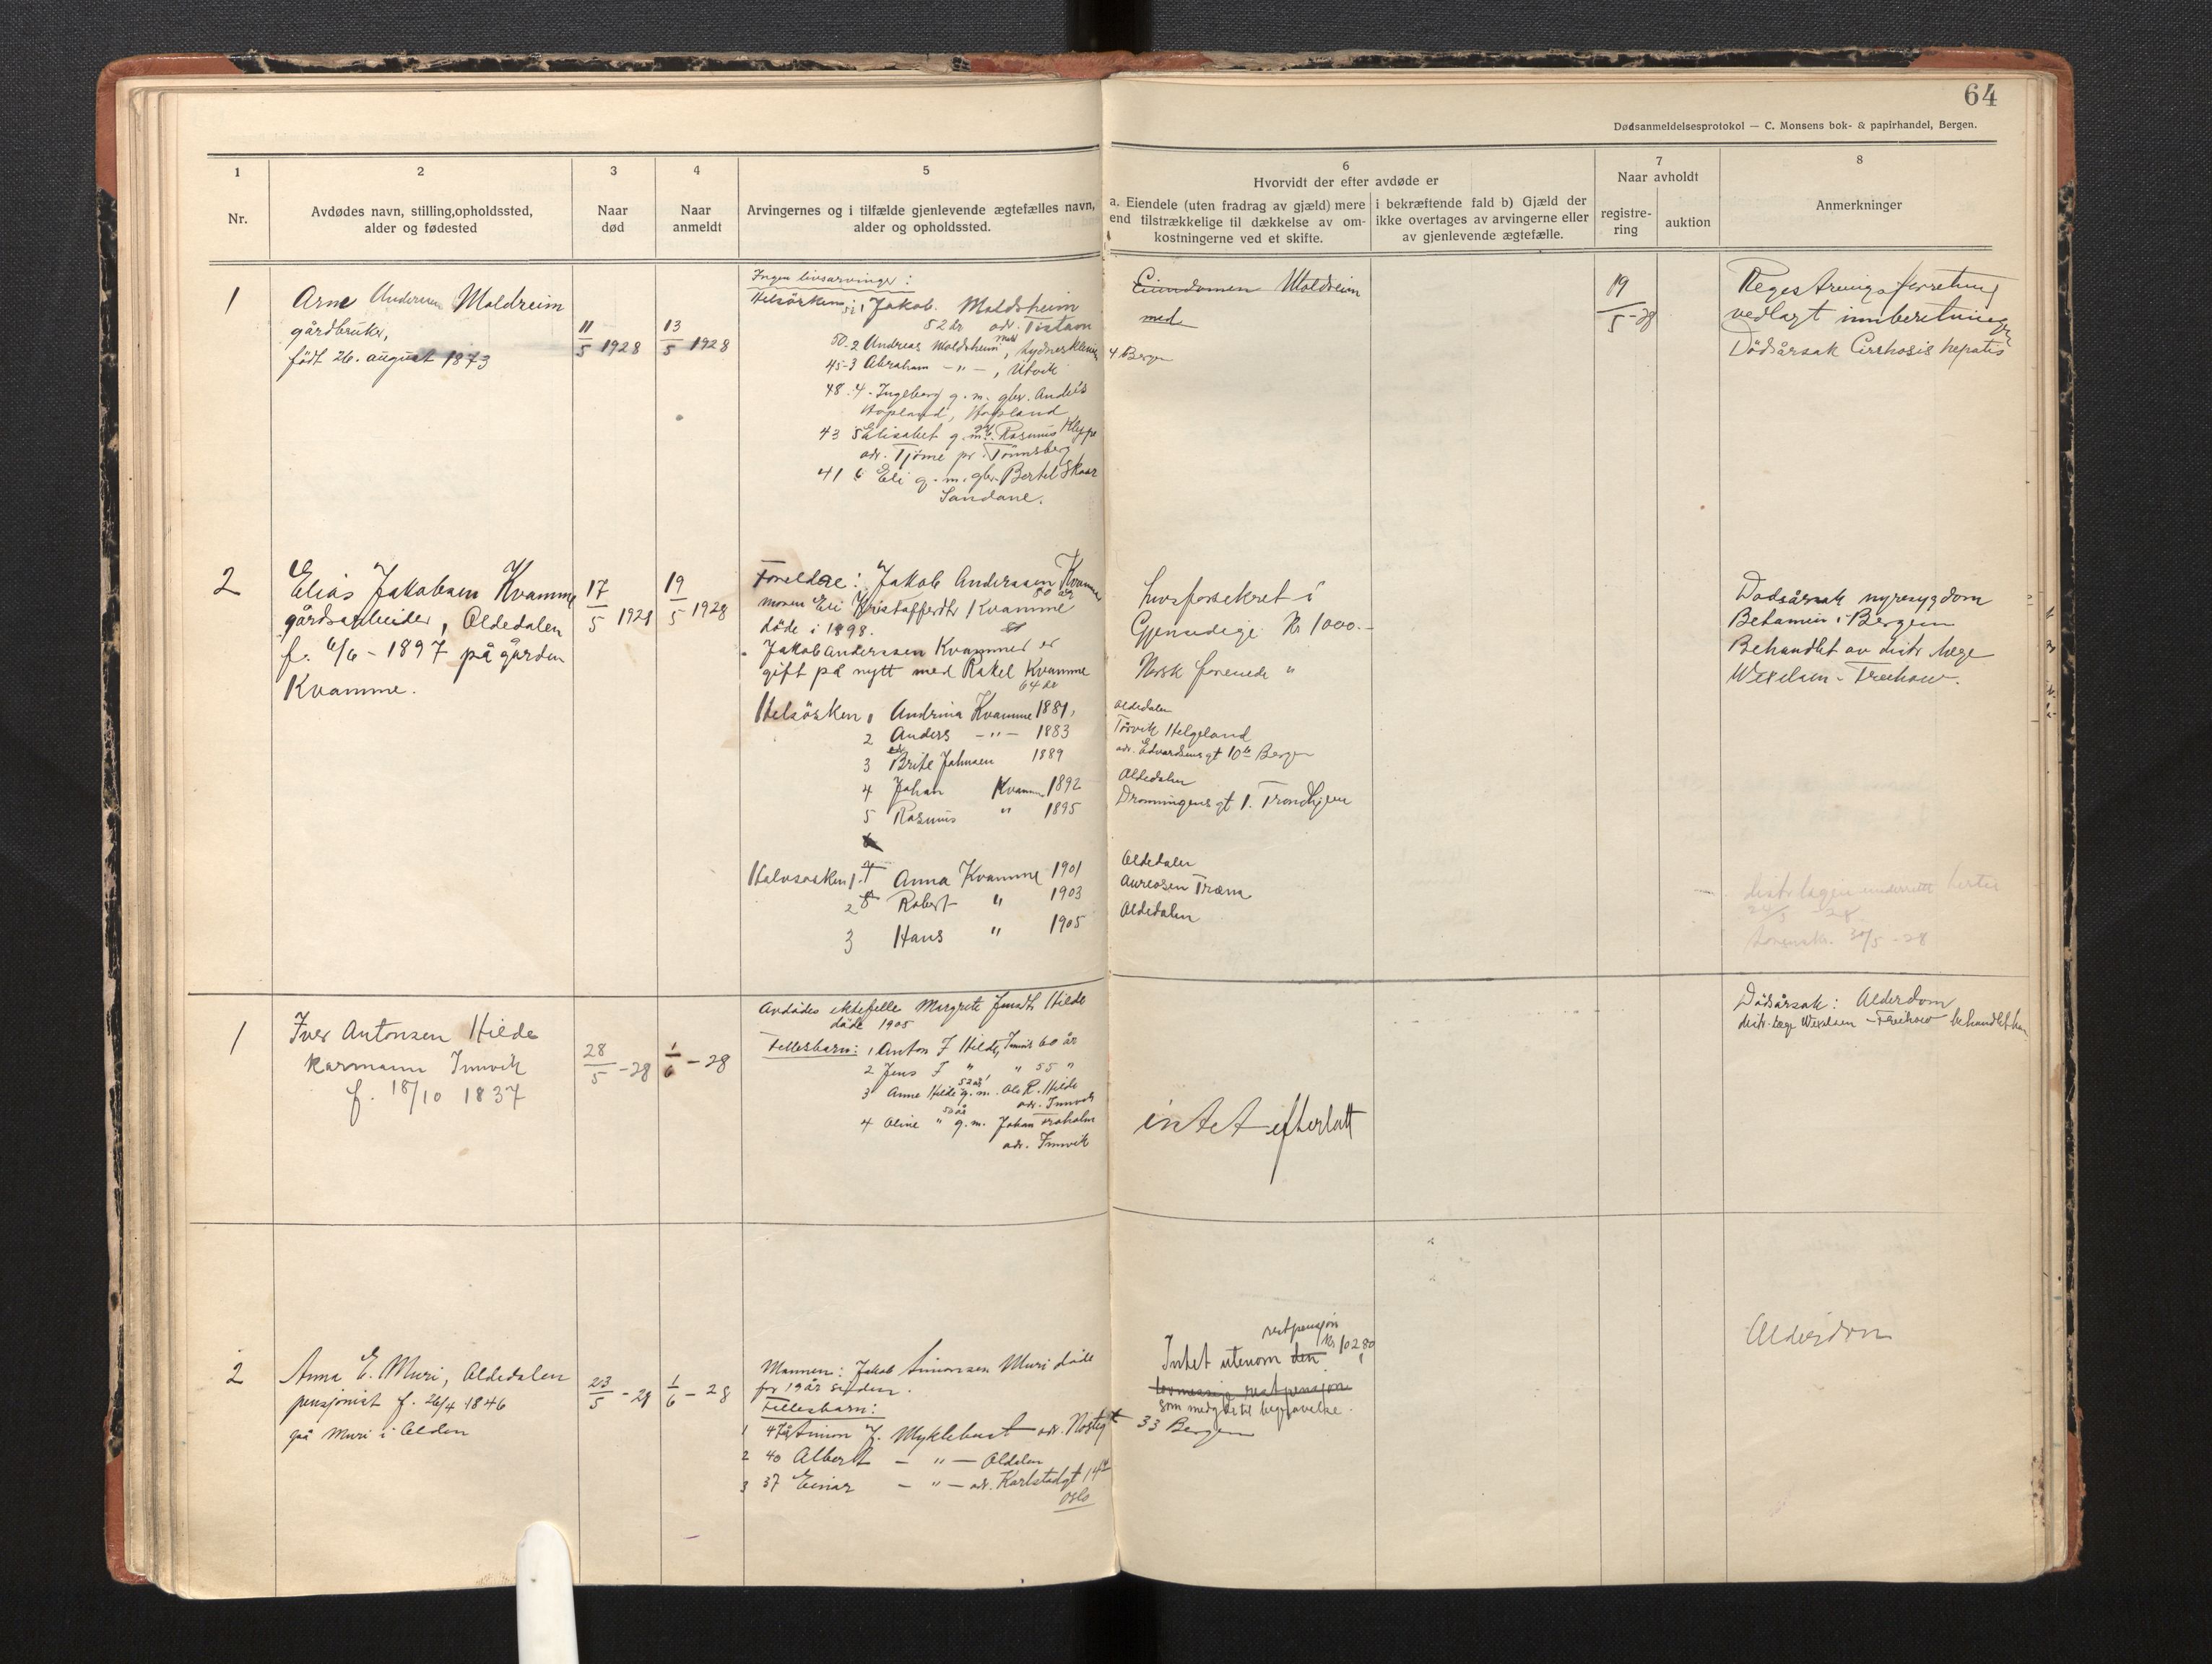 64
Dødsanmeldelsesprotokol — C. Monsens bok- & papirhandel, Bergen.
1
Nr.
2
Avdødes navn, stilling, opholdssted,
alder og fødested
3
Naar
død
4
Naar
anmeldt
5
Arvingernes og i tilfælde gjenlevende ægtefælles navn,
alder og opholdssted.
6
Hvorvidt der efter avdøde er
a. Eiendele (uten fradrag av gjæld) mere
end tilstrækkelige til dækkelse av om-
kostningerne ved et skifte.
i bekræftende fald b) Gjæld der
ikke overtages av arvingerne eller
av gjenlevende ægtefælle.
7
Naar avholdt
registre-
ring
auktion
8
Anmerkninger
1
Arne Andersen Moldreim
gårdbruker,
født 26. august 1873
11/5 1928
13/5 1928
Ingen livsarvinger:
Helsösken: 1 Jakob Moldsheim
52 år adr.
50-2 Andreas Moldsheim,
4 Bergen
45-3 Abraham -"-, Utvik
48-4. Ingeborg g.m. gbr. Anders
Hopland, Hopland
43 5 Elisabet g.m. Rasmus Kleppe
adr. Tjöme pr. Tönnsberg
41 6 Eli g.m. gbr. Bertel Skaar
Sandane.
Eiendomen Moldreim
med
19/5-28
Registreringsforretning
vedlagt innberetning
Dödsårsak Cirrhosis hepatis
2
Elias Jakobsen Kvamme
gårdsarbeider, Oldedalen
f. 6/6 - 1897 på gården
Kvamme.
17/5 1928
19/5 1928
Foreldre: Jakob Anderssen Kvamme
80 år
moren Eli Kristoffersdtr Kvamme
döde i 1898.
Jakob Anderssen Kvamme er
gift på nytt med Rakel Kvamme
64 år
Helsösken 1 Andrina Kvamme 1881, Oldedalen
2 Anders -"- 1883 Torvik Helgeland
3 Brite Johnsen 1889 adr. Edvardsensgt 10 Bergen
4 Johan Kvamme 1892 Oldedalen
5 Rasmus " 1895 Dronningensgt 1. Trondhjem
Halvsösken 1. Anna Kvamme 1901 Oldedalen
2 Robert " 1903 Træna
3 Hans " 1905 Oldedalen
Livsforsikret i
Gjensidige Kr 1000.-
Norsk forenede "
Dödsårsak nyresygdom
Betamen i Bergen
Behandlet av distr. læge
Wexelsen-Freihow.
24/5 -28
30/5 -28
1
Iver Antonsen Hilde
kårmann Innvik
f. 18/10 1837
28/5 -28
1/6 -28
Avdödes ektefelle Margrete Jensdtr Hilde
döde 1905
Fellesbarn: 1 Anton I Hilde, Innvik 60 år
2 Jens I " " 55 "
3 Anne Hilde 52 år g.m. Ole R. Hilde
adr. Innvik
4 Oline " 50 år g.m. Johan
adr. Innvik
intet efterlatt
Dödsårsak: Alderdom
distr. læge Wexelsen-Freihow behandlet ham
2
Anna E. Muri, Oldedalen
pensjonist f. 26/4 1846
på Muri i Olden
23/5 -28
1/6 -28
Mannen: Jakob Simonsen Muri döde
for 19 år siden.
Fellesbarn:
1 47 år Simon J. Myklebust adr. Nöstegt 33 Bergen
2 40 Albert -"- Olden
3 37 Einar -"- adr. Karlstadgt 14
Oslo
restpensjon
Kr 102.80
Intet utenom den
lovmessige restpensjon
som medgår til begravelse.
Alderdom